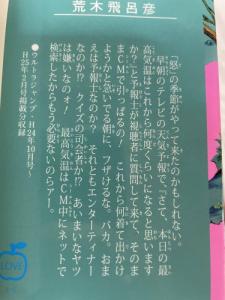 荒木飛呂彦
「怒」の季節がやって来たのかもしれない。
早朝のテレビの天気予報で、「さて、本日の最
高気温はこれから何度くらいになると思います
か？」と予報士が視聴者に質問して来て、そのま
まCMで引っぱるの！これから何着て出かけ
ようかと急いでる朝に、フザけるな。バカ。おま
えは予報士なのか？それともエンターティナー
なのか!?クイズの司会者か!?あいまいなヤツ
は嫌いなのォ！最高気温はCM中にネットで
検索したからもう必要ないのらァー。
●ウルトラジャンプ・H24年10月号〜
H25年2月号掲載分収録
LOVE